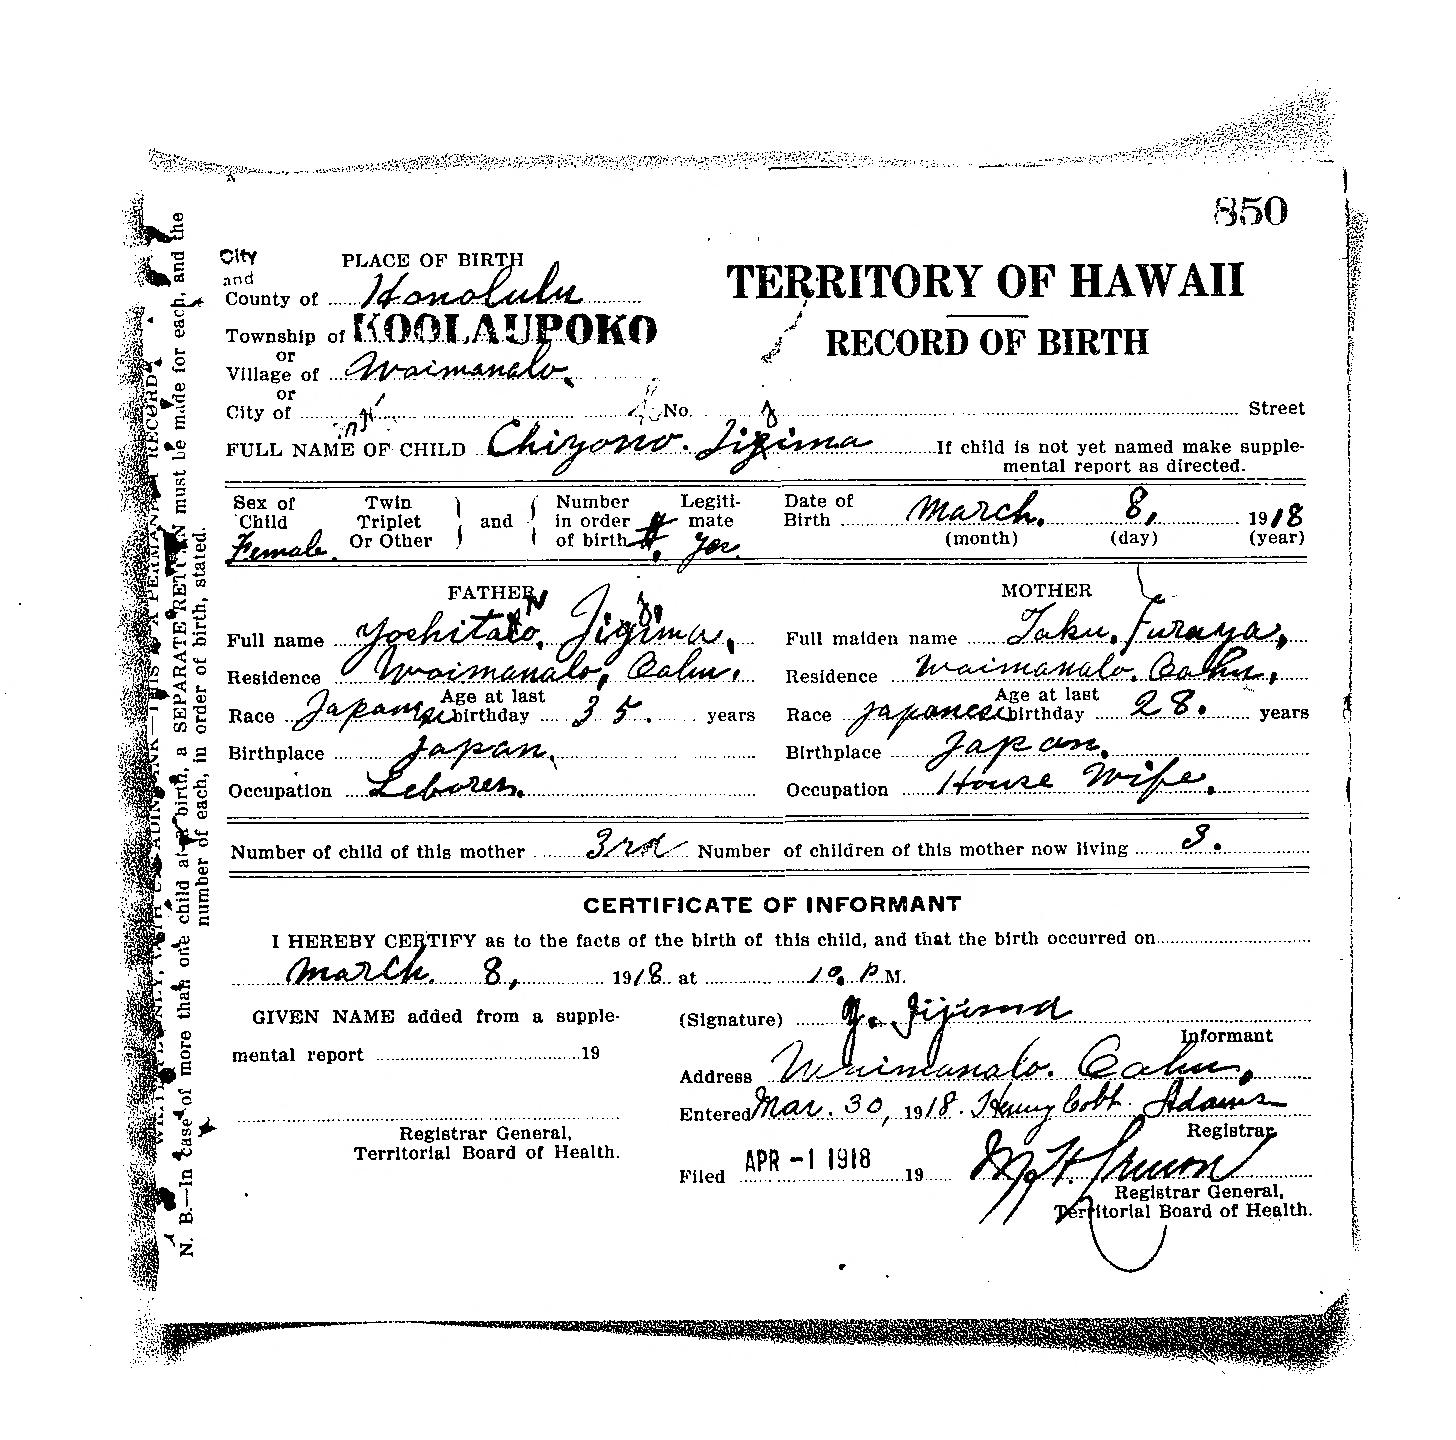 850
City
and
PLACE OF BIRTH
County of Honolulu
TERRITORY OF HAWAII
RECORD OF BIRTH
Township of KOOLAUPOKO
or
Village of Waimanalo.
or
City of No. Street
FULL NAME OF CHILD Chiyono. Jijima If child is not yet named make supple-
mental report as directed.
Sex of Child Female. Twin Triplet Or Other } and { Number in order of birth Legiti- mate Yes. Date of Birth March. 8, 1918
(month) (day) (year)
FATHER MOTHER
Full name Jijima, Full maiden name Taku. Furuya,
Residence Waimanalo, Oahu. Residence Waimanalo. Oahu,
Race Japanese Age at last birthday 35. years Race Japanese Age at last birthday 28. years
Birthplace Japan. Birthplace Japan.
Occupation Leborer. Occupation House Wife.
Number of child of this mother 3rd Number of children of this mother now living 3.
CERTIFICATE OF INFORMANT
I HEREBY CERTIFY as to the facts of the birth of this child, and that the birth occurred on
March. 8, 1918 at 10. P M.
GIVEN NAME added from a supple-
mental report 19
Registrar General,
Territorial Board of Health.
(Signature) Y. Jijima
Informant
Address Waimanalo. Oahu,
Entered Mar. 30, 1918. Henry Cobb Adams
Registrar
Filed APR -1 1918 19
Registrar General,
Territorial Board of Health.
N. B.—In case of more than one child at a birth, a SEPARATE RETURN must be made for each, and the
number of each, in order of birth, stated.